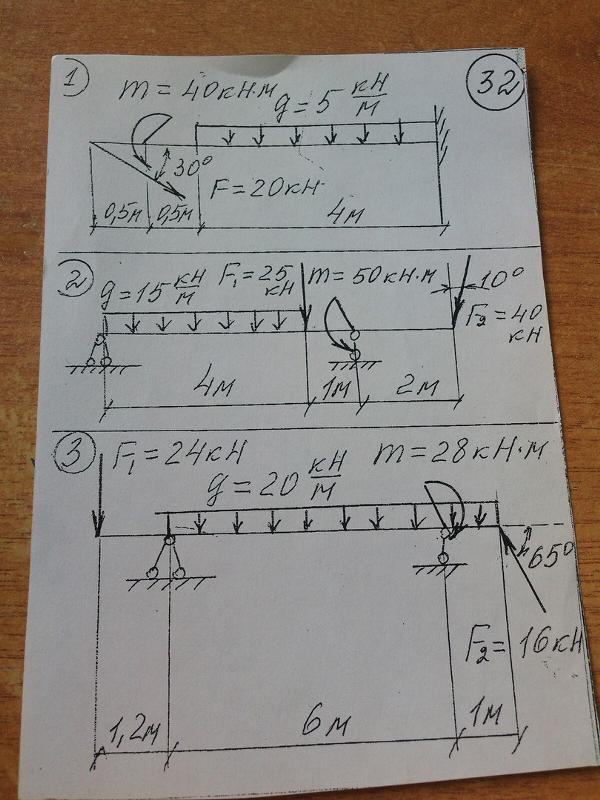 1
32
m = 40кН·м
g = 5 кН/м
30°
F = 20кН
0,5м 0,5м 4м
2
g = 15 кН/м
F₁ = 25 кН
m = 50кН·м
10°
F₂ = 40 кН
4м 1м 2м
3
F₁ = 24кН
g = 20 кН/м
m = 28кН·м
65°
F₂ = 16кН
1,2м 6м 1м